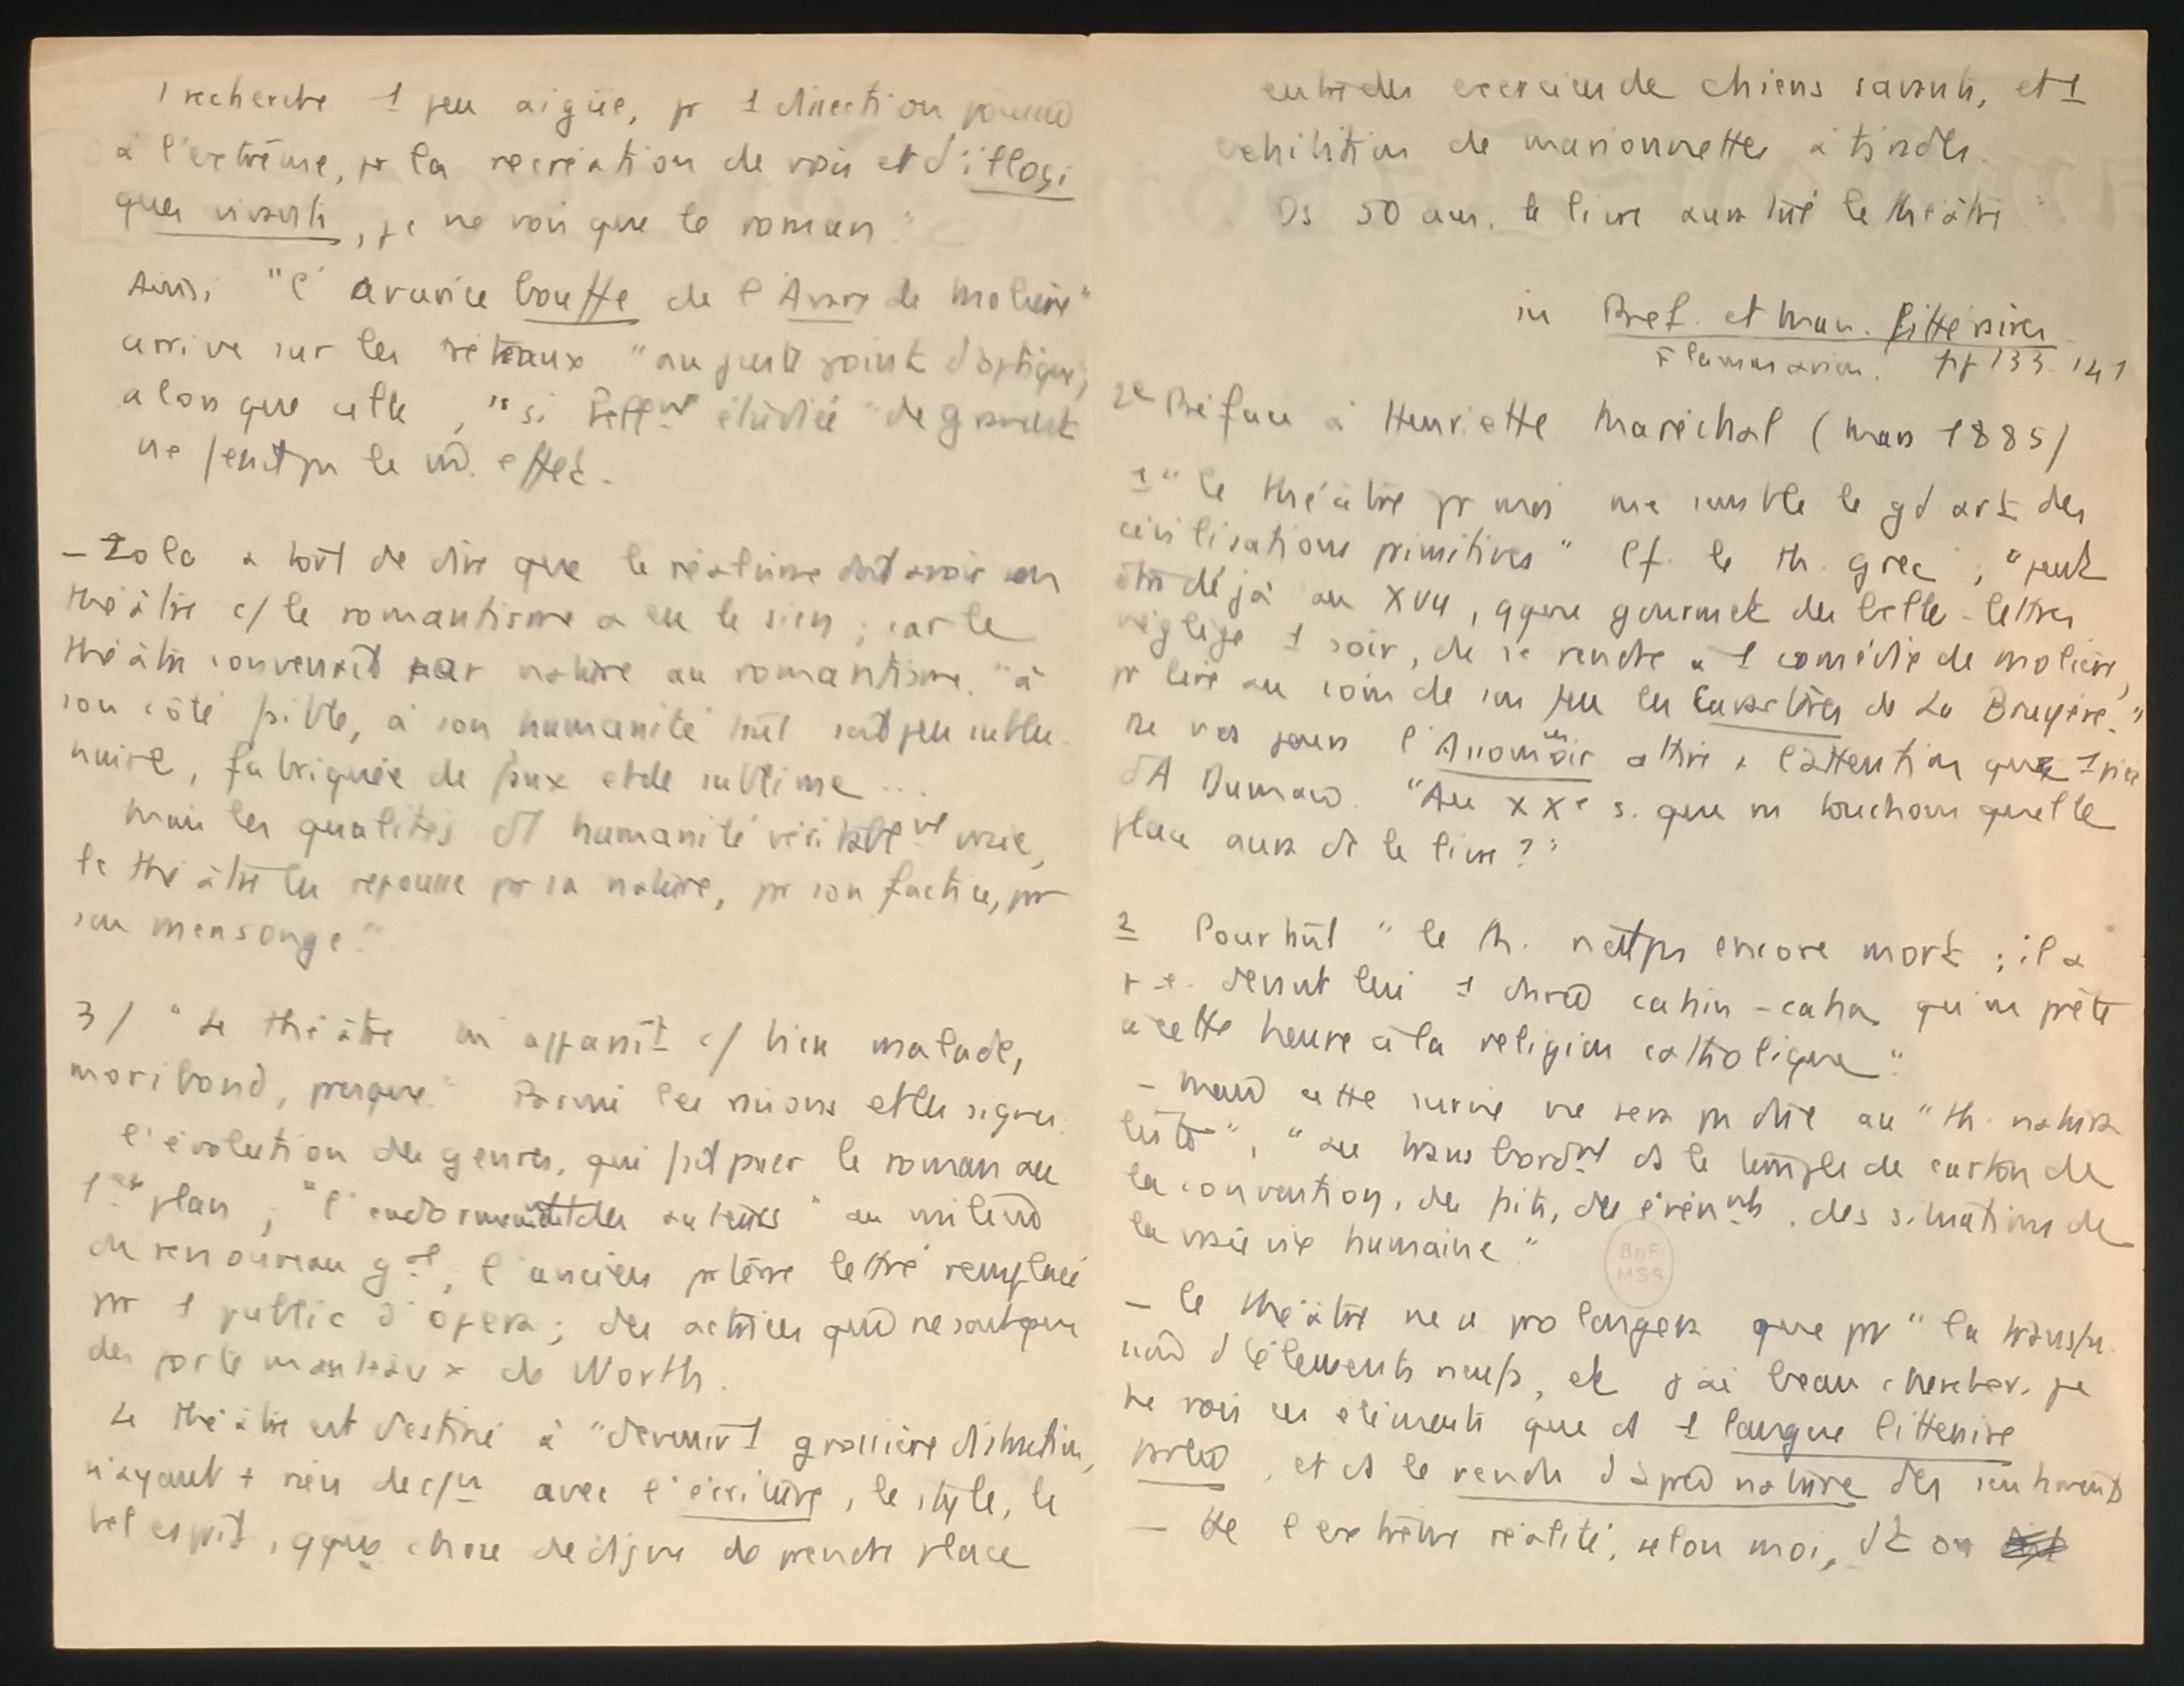 1 recherche 1 peu aigüe, pr 1 dissection poussée
à l'extrême, pr la recréation de vrais et d'illogi
ques vivants, je ne vois que le roman"
Ainsi "l'avarice bouffe de l'Avare de Molière"
arrive sur les tréteaux "au juste point d'optique",
alors que celle, "si tellmt étudiée" de grandet
ne ferait pas le m̂ effet.
- Zola a tort de dire que le réalisme doit avoir son
théâtre c/ le romantisme a eu le sien ; car le
théâtre convenait par nature au romantisme. "à
son côté faible, à son humanité tût soit peu sublu-
naire, fabriquée de faux et de sublime...
mais les qualités d'1 humanité véritablemt vraie,
le théâtre les repousse pr sa nature, pr son factice, pr
son mensonge."
3/ "Le théâtre m'apparaît c/ bien malade,
moribond, presque" Parmi les raisons et les signes
l'évolution des genres, qui fait passer le roman au
1er plan ; "l'endormement des auteurs" au milieu
du renouveau gal, l'ancien parterre lettré remplacé
pr 1 public d'opéra ; des actrices qui ne sont que
des porte manteaux de Worth.
Le théâtre est destiné à "devenir 1 grossière distraction,
n'ayant + rien de c/un avec l'écriture, le style, le
bel esprit, qque chose de digne de prendre place
entre des exercices de chiens savants, et 1
exhibition de marionnettes à tirades.
Ds 50 ans, le livre aura tué le théâtre"
in Préf. et Man. littéraires
Flammarion. pp 133 141
2e Préface à Henriette Maréchal (mars 1885)
1 "le théâtre pr moi me semble le gd art des
civilisations primitives" Cf. le th. grec ; "peut
être déjà au XVII, qque gourmet des belles-lettres
néglige 1 soir, de se rendre à 1 comédie de Molière,
pr lire au coin de son feu les Caractères de La Bruyère."
De nos jours l'Assommoir attire + l'attention que 1 pièce
d'A Dumas. "Au XXe s. que ns touchons quelle
place aura ds le livre ?"
2 Pourtant "le th. n'est pas encore mort ; il a
p.e. devant lui 1 durée cahin-caha, qu'on prête
à cette heure à la religion catholique".
- Mais cette survie ne sera pas due au "th. natura
liste", "au transbordmt ds le temple de carton de
la convention, des faits, des événmts, des situations de
la vraie vie humaine"
BnF
MSS
- le théâtre ne se prolongera que pr "la transfu-
sion d'éléments neufs, et j'ai beau chercher, je
ne vois ces éléments que ds 1 langue littéraire
parlée, et ds le rendu d'après nature des sentiments
- de l'extrême réalité, selon moi, dt on